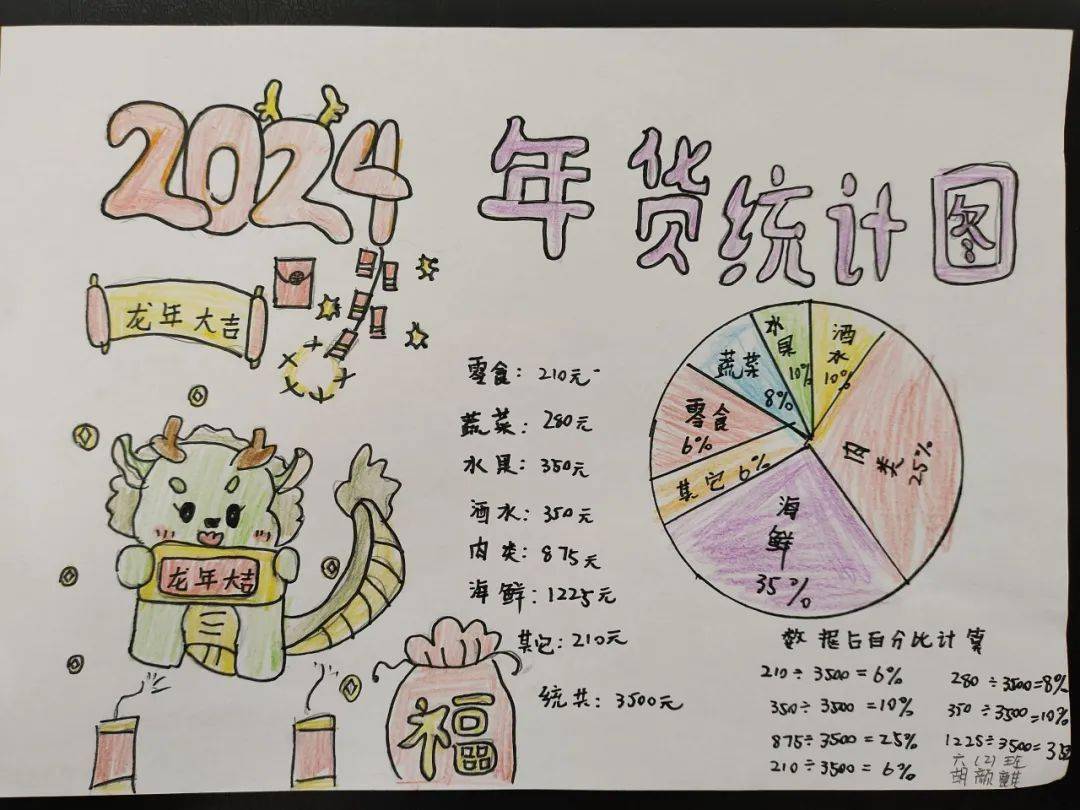 2024
年货统计图
龙年大吉
零食：210元
蔬菜：280元
水果：350元
酒水：350元
肉类：875元
海鲜：1225元
其它：210元
统共：3500元
水果10%
酒水10%
蔬菜
8%
肉类25%
零食
6%
其它6%
海鲜
35%
龙年大吉
福
数据占百分比计算
210÷3500=6%
280÷3500=8%
350÷3500=10%
350÷3500=10%
875÷3500=25%
1225÷3500=35
210÷3500=6%
六(2)班
胡颜麒